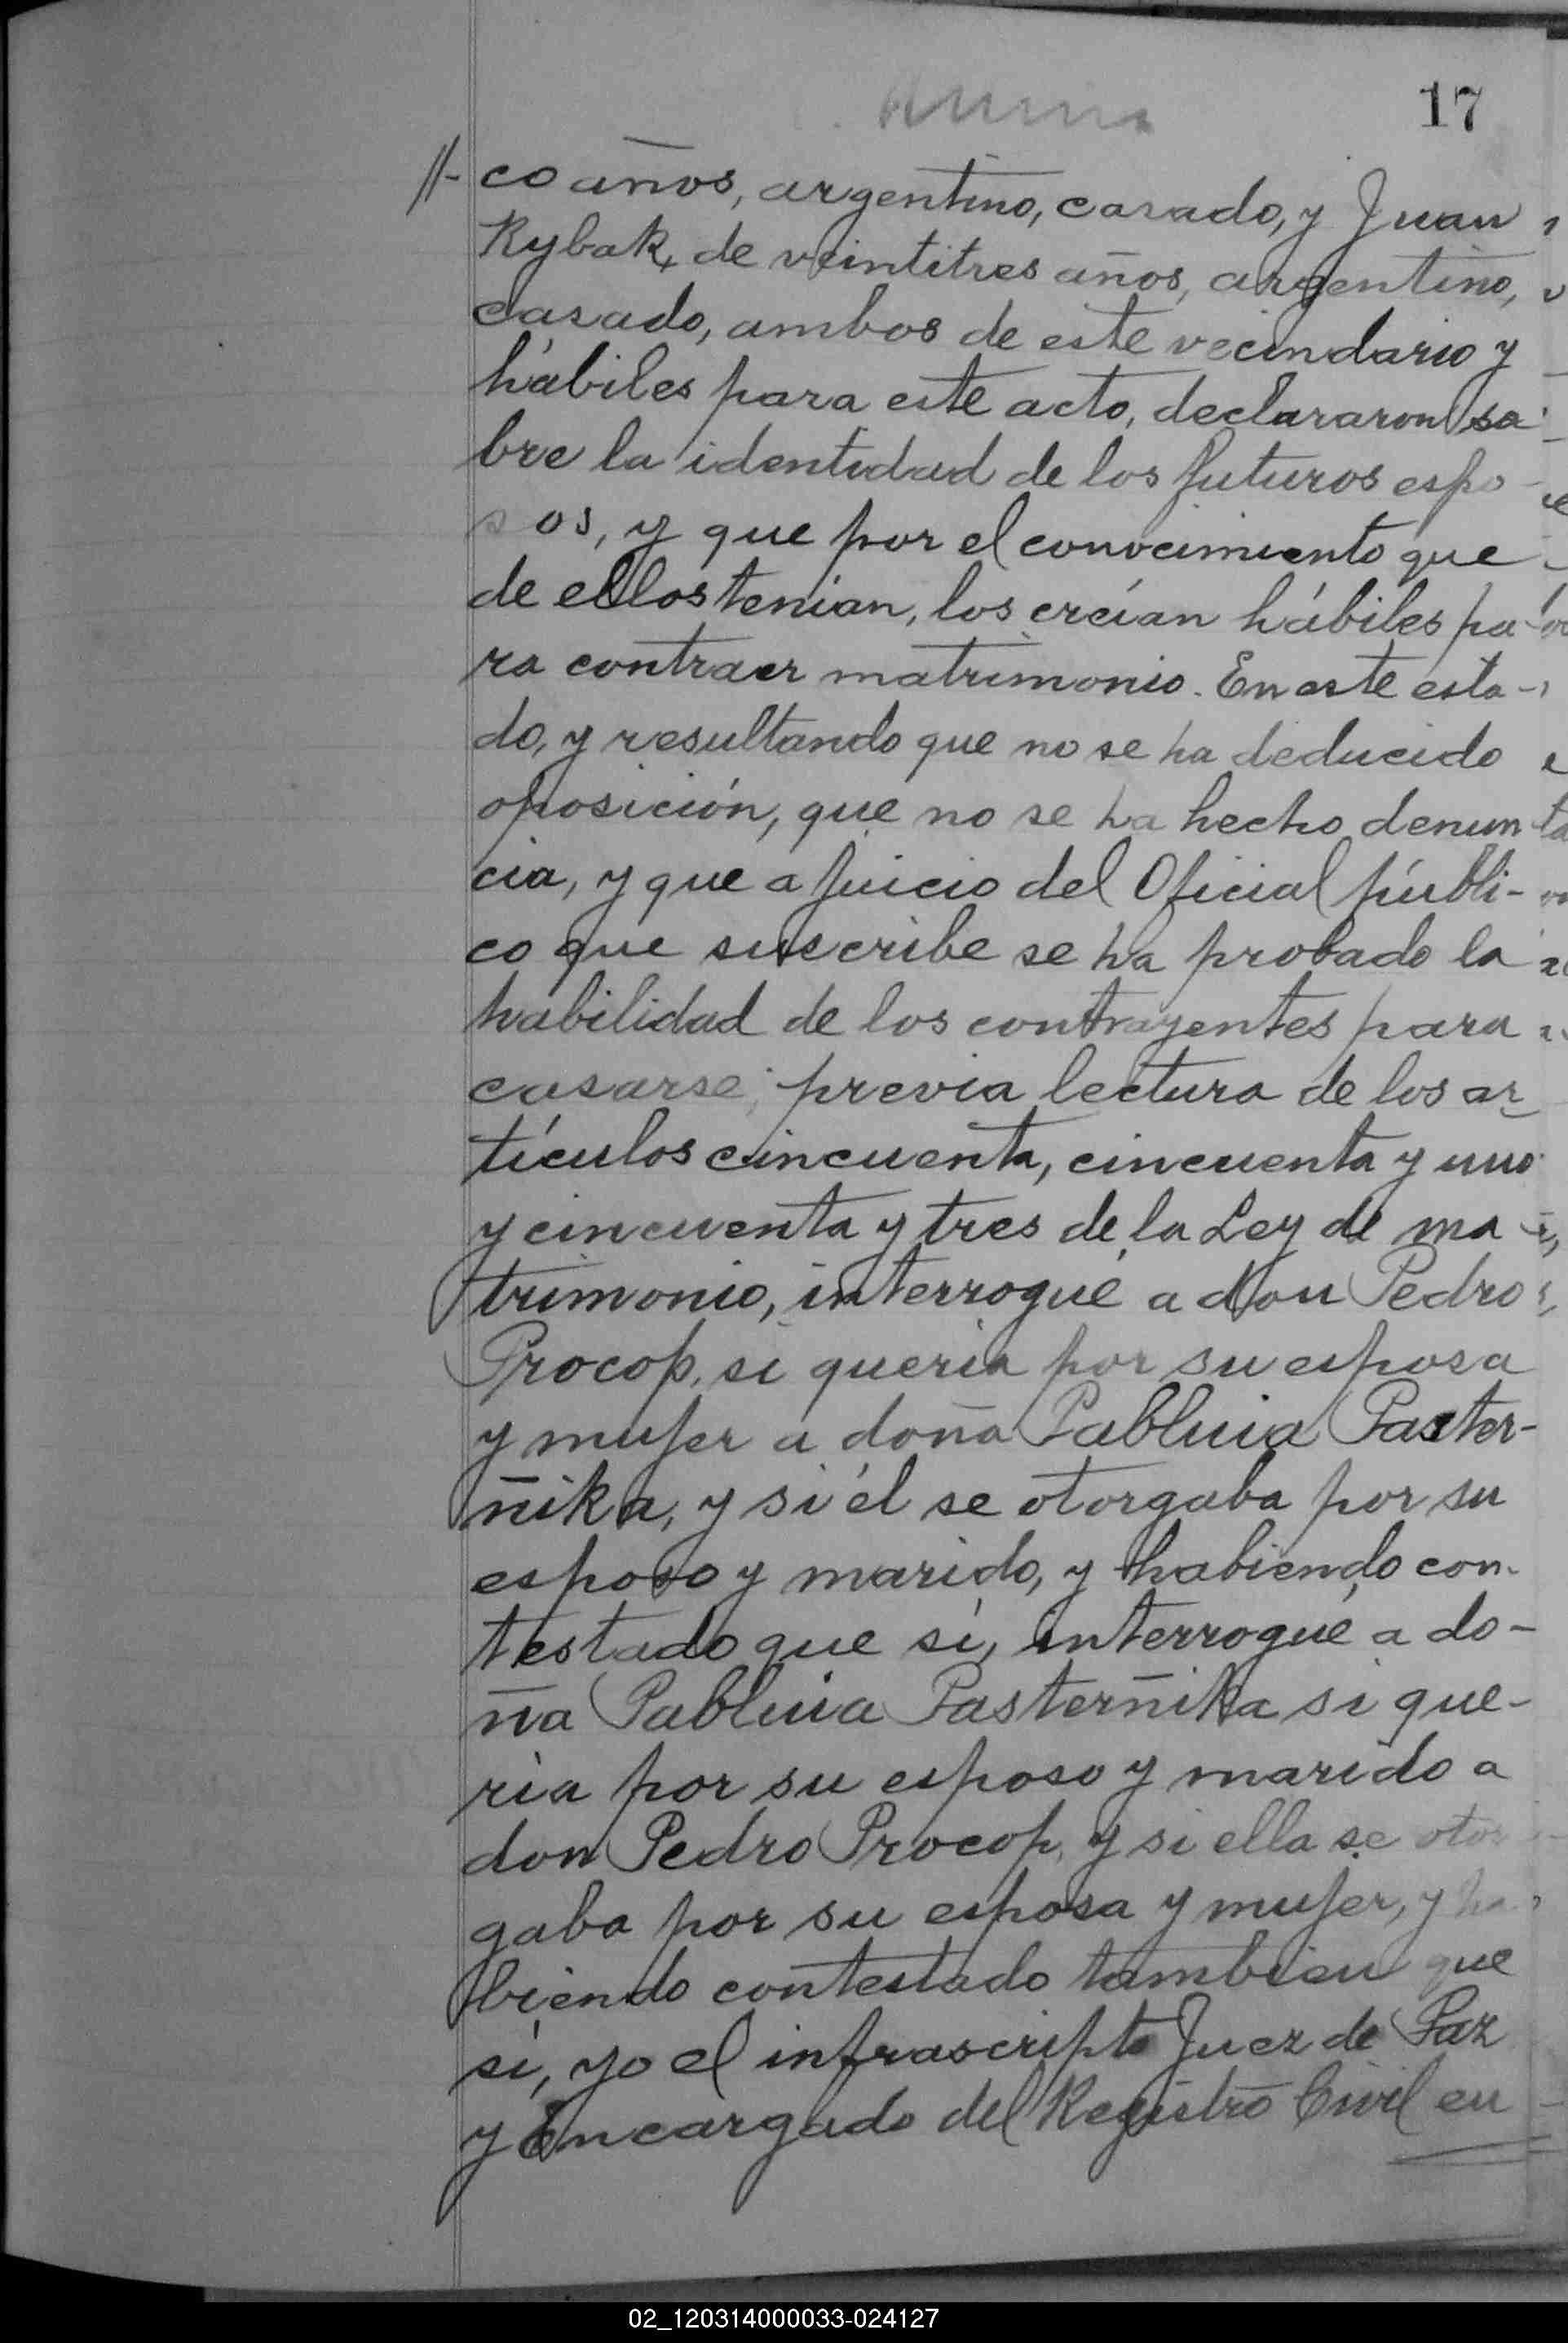 17
//- co años, argentino, casado, y Juan
Rybak, de veintitres años, argentino,
casado, ambos de este vecindario y
hábiles para este acto, declararon so
bre la identidad de los futuros espo-
sos, y que por el conocimiento que
de ellos tenían, los creían hábiles pa-
ra contraer matrimonio. En este esta-
do, y resultando que no se ha deducido
oposición, que no se ha hecho denun
cia, y que a juicio del Oficial públi-
co que suscribe se ha probado la
habilidad de los contrayentes para
casarse; previa lectura de los ar
tículos cincuenta, cincuenta y uno
y cincuenta y tres de la Ley de ma
trimonio, interrogué a don Pedro
Procop, si quería por su esposa
y mujer a doña Pabluia Paster-
ñika, y si él se otorgaba por su
esposo y marido, y habiendo con-
testado que sí, interrogué a do-
ña Pabluia Pasterñika si que-
ría por su esposo y marido a
don Pedro Procop, y si ella se otor
gaba por su esposa y mujer, y ha
biendo contestado tambien que
sí, yo el infrascripto Juez de Paz
y Encargado del Registro Civil en
02_120314000033-024127